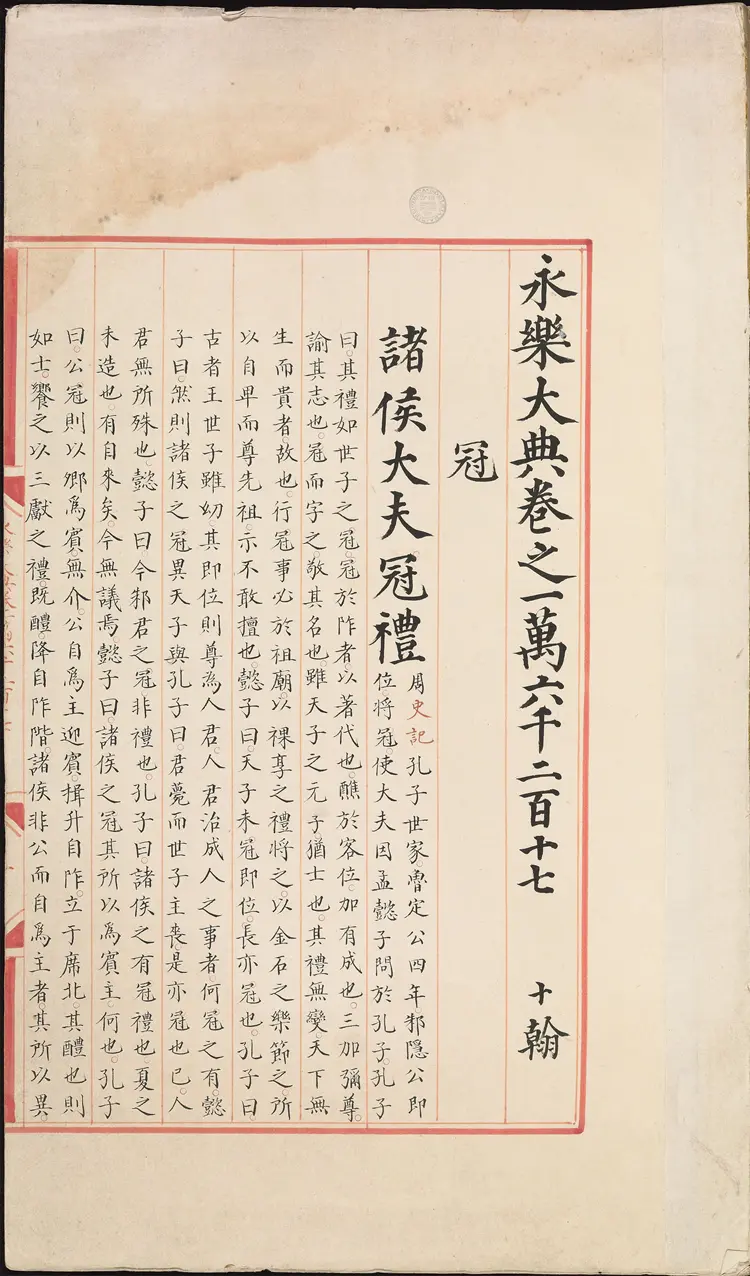 永樂大典卷之一萬六千二百十七 十翰
冠
諸侯大夫冠禮
周史記孔子世家。魯定公四年邾隱公即
位。將冠。使大夫因孟懿子問於孔子。孔子
曰。其禮如世子之冠。冠於阼者。以著代也。醮於客位。加有成也。三加彌尊。
諭其志也。冠而字之。敬其名也。雖天子之元子猶士也。其禮無變。天下無
生而貴者。故也。行冠事必於祖廟。以祼享之禮將之。以金石之樂節之。所
以自卑而尊先祖。示不敢擅也。懿子曰。天子未冠即位。長亦冠也。孔子曰。
古者王世子雖幼。其即位則尊為人君。人君治成人之事者。何冠之有。懿
子曰。然則諸侯之冠異天子與。孔子曰。君薨而世子主喪。是亦冠也已。人
君無所殊也。懿子曰。今邾君之冠非禮也。孔子曰。諸侯之有冠禮也。夏之
未造也。有自來矣。今無議焉。懿子曰。諸侯之冠其所以為賓主。何也。孔子
曰。公冠則以卿為賓。無介。公自為主。迎賓。揖升自阼。立于席北。其醴也則
如士。饗之以三獻之禮。既醴。降自阼階。諸侯非公而自為主者。其所以異。